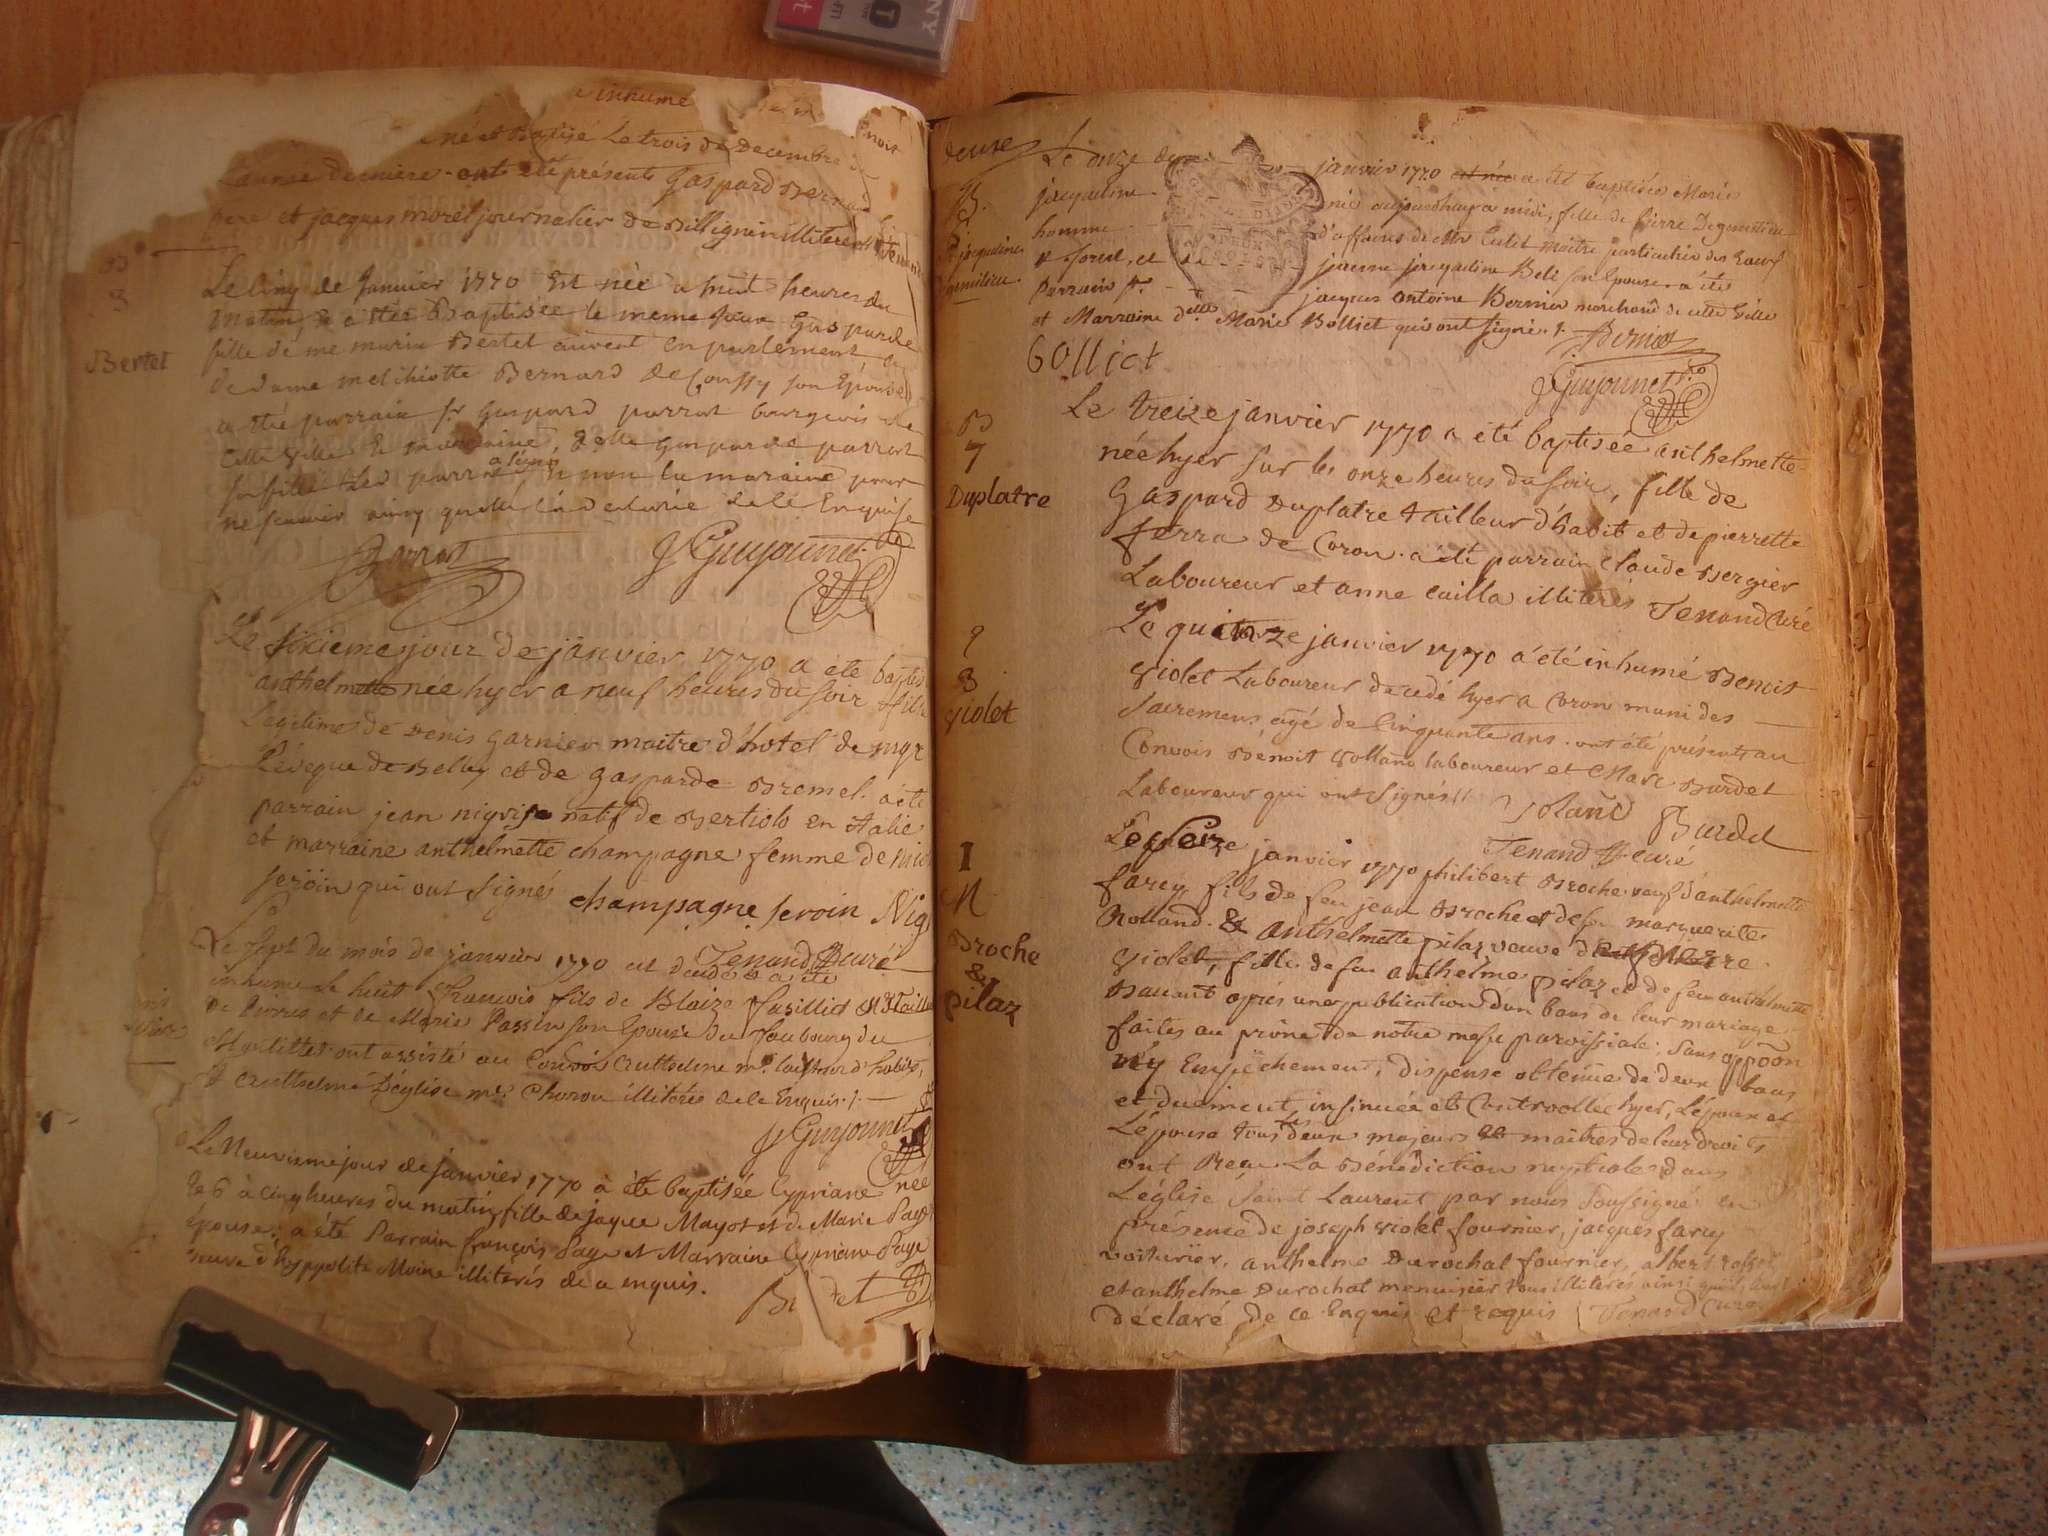 inhumé
né et Baptisé Le trois de Decembre
L'année derniere. ont été présents Gaspard Bernard
pere et jacques morel journalier de Billignin illiterés
B
3
Bertet
Le cinq de Janvier 1770 Est née a huit heures du
matin & a étée Baptisée le meme jour Gasparde
fille de me marin Bertet auvent en parlement et
de dame melchiotte Bernard de Coussy son Epouse
a été parrain sr Gaspard parrat bourgeois de
cette ville & maraine, delle Gasparde parrat
sa fille Led parrain a signé & non la maraine pour
ne scavoir ainsy quelle l'a declarée de ce Enquise
Parrat J Guyonnet
Le sixieme jour de janvier 1770 a été baptisé
anthelme née hyer a neuf heures du soir fils
Legitime de Denis garnier maitre d'hotel de mgr
L'évêque de Belley et de gasparde Bremel. a été
parrain jean nigri natif de Bertiolo en italie
et marraine anthelmette champagne femme de
seroin qui ont signés champagne seroin Nig
Tenand Curé
Le sept du mois de janvier 1770 est decedé & a été
inhumé le huit François fils de Blaize Fusilliet Me Tailleur
de Pierres et de Marie Passin son Epouse du Faubourg du
ont assisté au Convois Anthelme me tailleur d'habits,
& Anthelme Déglise me Charon illitérés de ce Enquis ./.
J Guyonnet
Le Neuvieme jour de janvier 1770 à été baptisée Cypriane née
le 6 à cinq heures du matin fille de jaque Mayot et de Marie Page
épouse; a été Parrain françois Page et Marraine Cypriane Page
veuve d'hyppolite Moine illiterés de ce enquis.
deuxe
B.
6
jacqueline
Le onze de janvier 1770 est née a été baptisée Marie
jacqueline née aujourdhuy a midi, fille de Pierre Degemilieu
homme d'affaires de Mr Cullet maitre particulier des Eaux
& forest, et de jeanne jacqueline Bele son Epouse. a été
Parrain sr. jacques antoine Bernier marchand de cette ville
et Marraine delle Marie Bolliet qui ont signé ./. Bernier
bolliet
J Guyonnet
B
7
Duplatre
Le treize janvier 1770 a été baptisée anthelmette
née hyer sur les onze heures du soir, fille de
Gaspard Duplatre tailleur d'habit et de pierrette
ferra de Coron. a été parrain claude Bergier
Laboureur et anne cailla illiterés Tenand Curé
3
violet
Le quinze janvier 1770 a été inhumé Benoit
Violet Laboureur decedé hyer a Coron muni des
Sacremens agé de Cinquante ans. ont été présents au
Convois Bénoit Volland laboureur et Marc Burdet
Laboureur qui ont signés ./. Volland Burdet
Tenand curé
1
M
Broche
&
pilaz
Le seize janvier 1770 philibert Broche veuf d'anthelmette
farcy fils de feu jean Broche et de feu marguerite
Rolland. & Anthelmette pilaz veuve
Violet, fille de feu anthelme pilaz et de feu anthelmette
Bavant après une publication d'un bans de leur mariage
faites au prône de notre messe paroissiale; sans oppoõn
ny Empêchement, dispense obtenüe de deux bans
et duement insinuée et Controollée hyer, L'époux et
L'épouse tous les deux majeurs et maîtres de leur droits
ont Reçu La bénédiction nuptiale dans
L'église Saint Laurent par nous Soussigné en
présence de joseph violet fournier, jacques farcy
voiturier, anthelme Durochat fournier, albert
et anthelme Durochat menuisier tous illiterés ainsi qu'ils l'ont
déclaré de ce Enquis et requis Tenand Curé